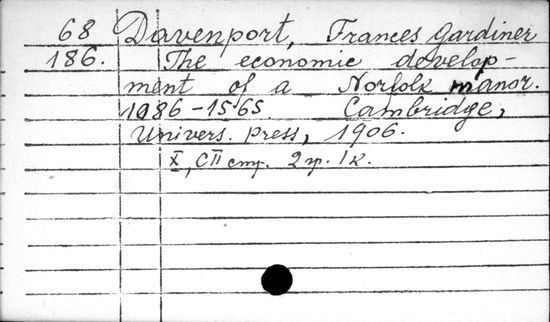 68 Davenport, Frances Gardiner
186. The economic develop-
ment of a Norfolk manor.
1086-1565. Cambridge,
Univers. press, 1906.
X, CII стр. 2 гр. 1 к.